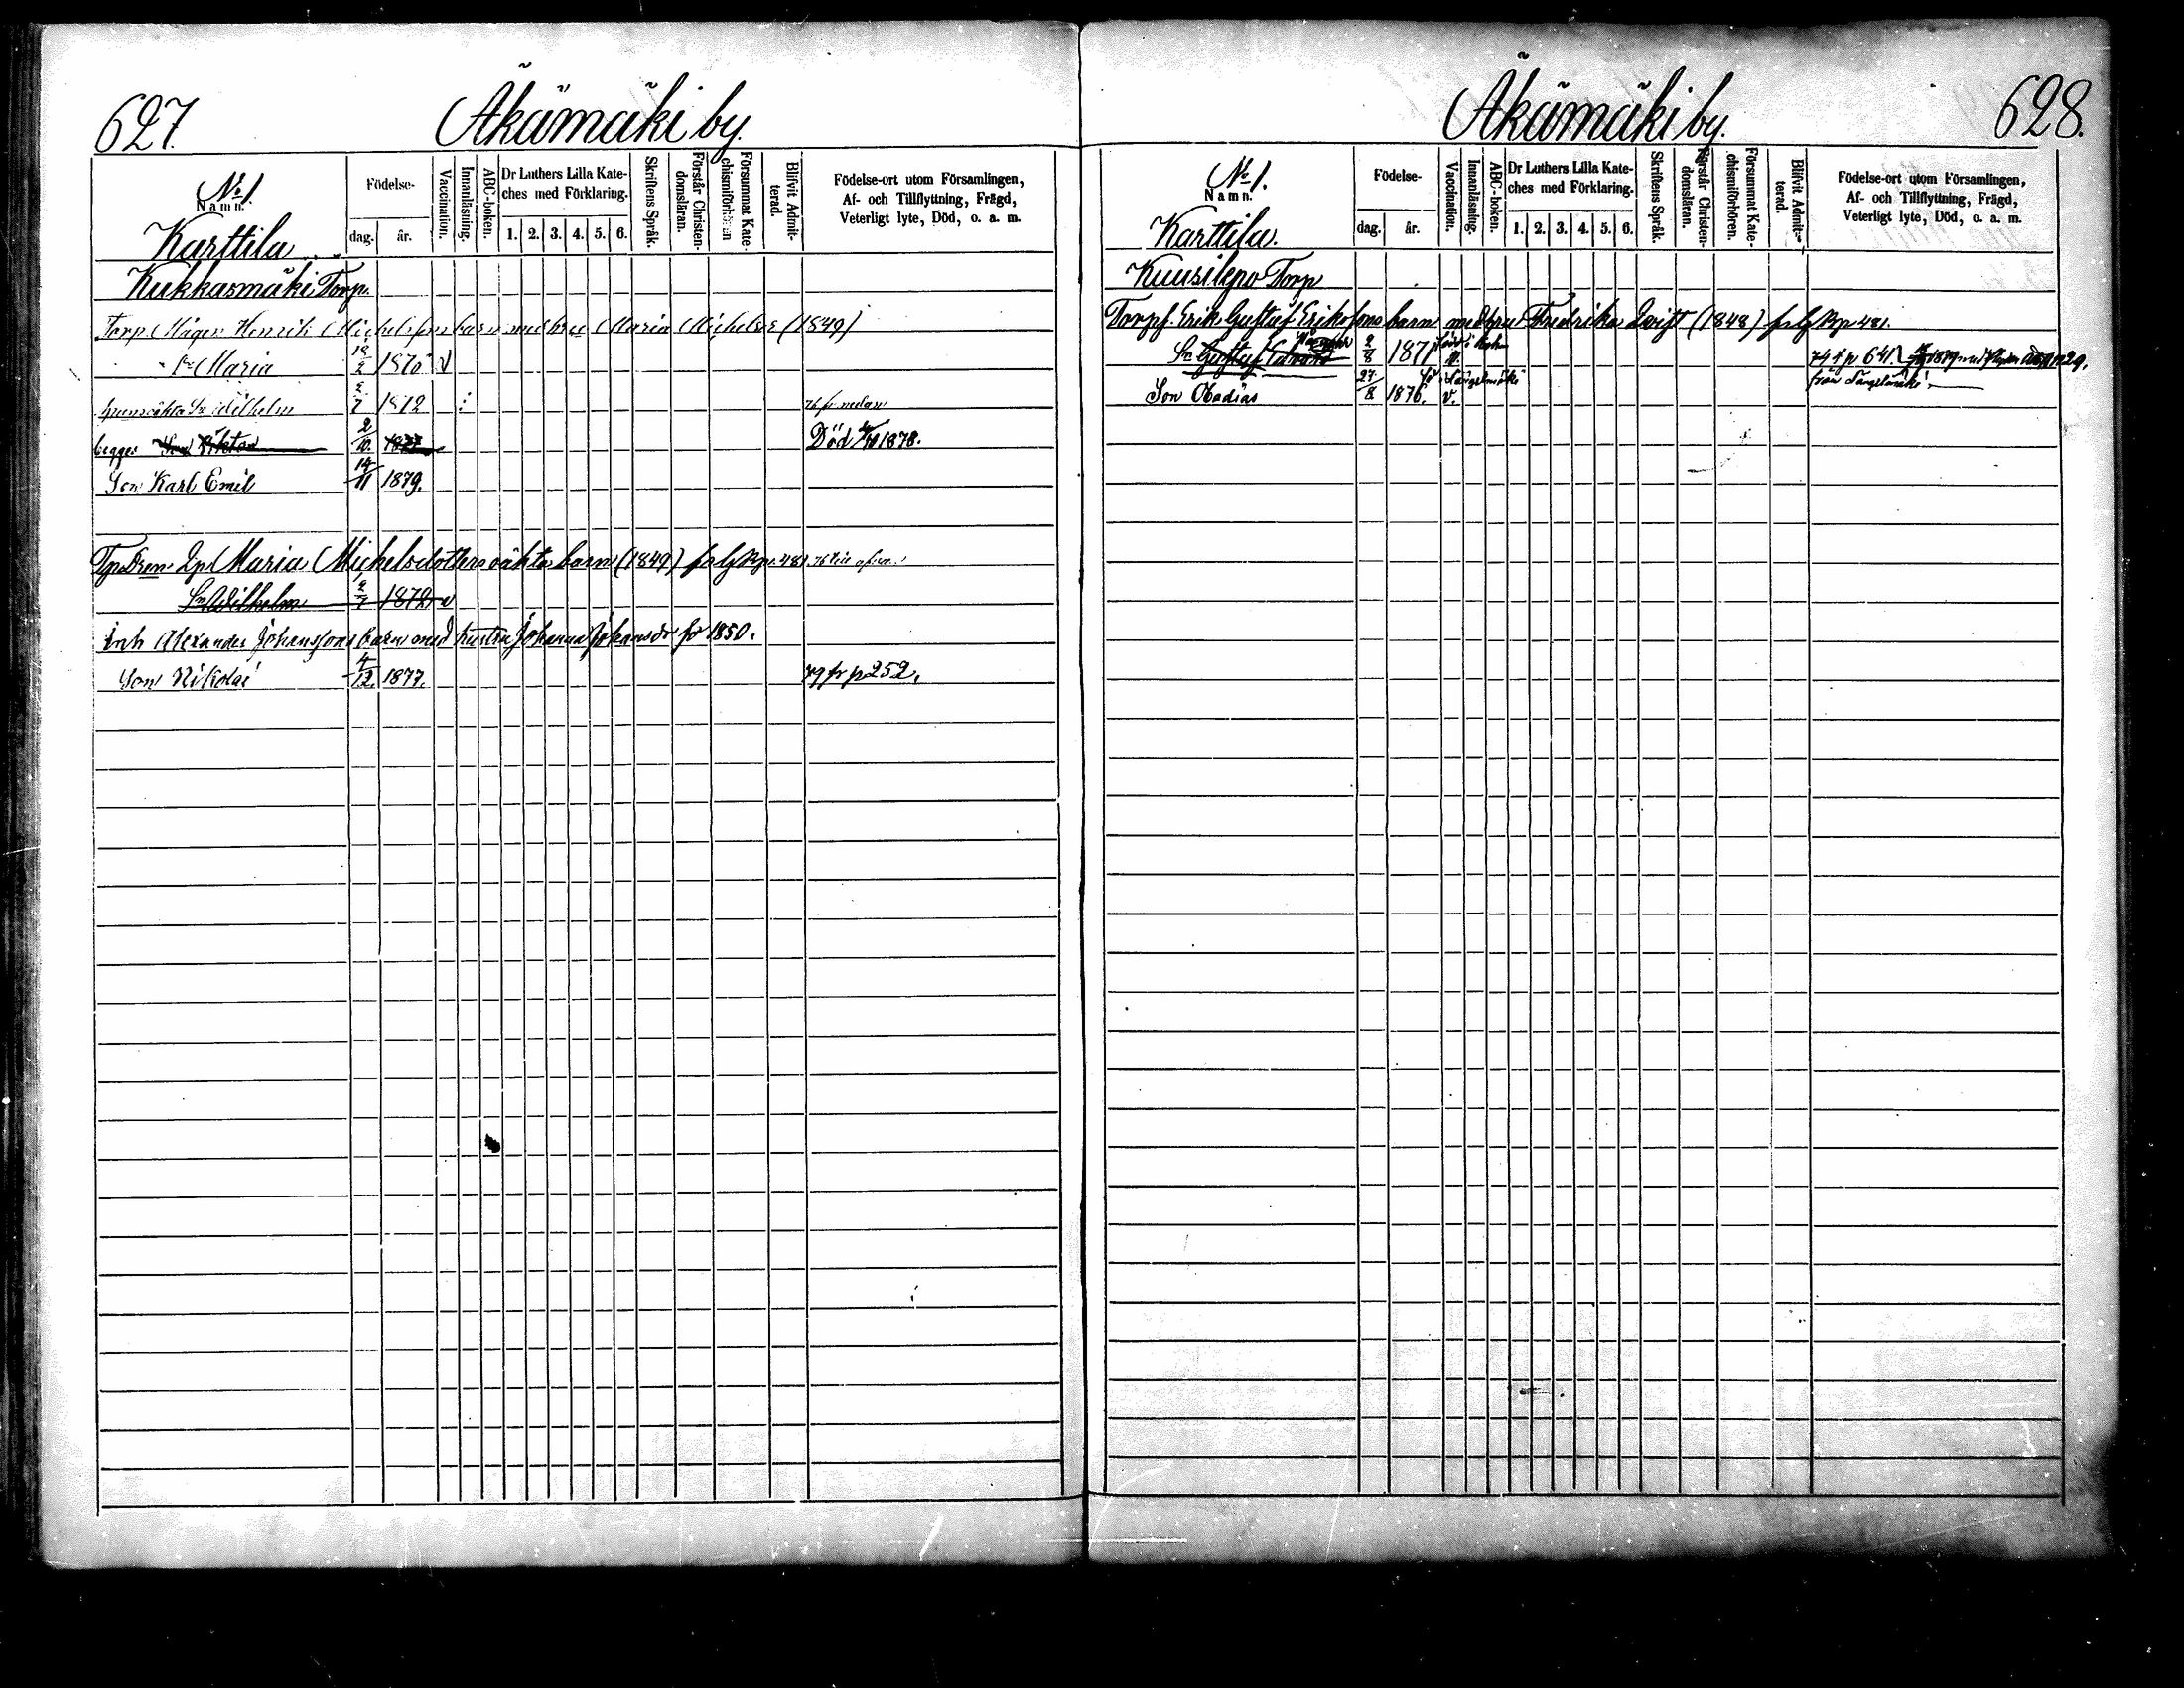 627.
Äkämäki by.
No 1
Namn.
Födelse-
dag.
år.
Vaccination.
Innanläsning.
ABC-boken.
Dr Luthers Lilla Kate-
ches med Förklaring.
1. 2. 3. 4. 5. 6.
Skriftens Språk.
Förstår Christen-
domsläran.
Försummat Kate-
chismiförhören
Blifvit Admit-
terad.
Födelse-ort utom Församlingen,
Af- och Tillflyttning, Frägd,
Veterligt lyte, Död, o. a. m.
Karttila
Kukkasmäki Torp.
Torp. Måge Henrik Michelssons barn med hru Maria Michelsr (1849)
Maria 18/2 1870 v
hruns oäkta Sn Wilhelm 2/7 1872 76 fr nedan
begges Son Viktor 2/10. Död 1878.
Son Karl Emil 14/11 1879.
Maria Michelsdotters oäkta barn (1849) 481. 76 till ofvan
Sn Wilhelm 2/7 1872 v
Inh Alexander Johanssons barn med hustru Johanna Johansdr fr 1850.
Son Nikolai 4/12. 1877. 79 fr p 252.
628.
Äkämäki by.
No 1.
Namn.
Födelse-
dag.
år.
Vaccination.
Innanläsning.
ABC-boken.
Dr Luthers Lilla Kate-
ches med Förklaring.
1. 2. 3. 4. 5. 6.
Skriftens Språk.
Förstår Christen-
domsläran.
Försummat Kate-
chismiförhören.
Blifvit Admit-
terad.
Födelse-ort utom Församlingen,
Af- och Tillflyttning, Frägd,
Veterligt lyte, Död, o. a. m.
Karttila.
Kuusilepo Torp
Torpf. Erik Gustaf Erikssons barn med hru Fredrika Qvist (1848) 481.
Sn Gustaf Edvard 2/8 1871 v. 74 f p 641
från Längelmäki
Son Obadias 27/8 1876. v. Längelmäki